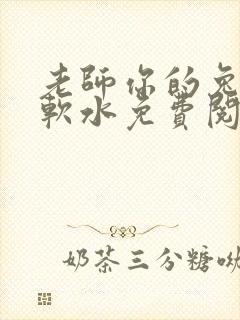 老師你的兔
軟水免費閱
奶茶三分糖呦